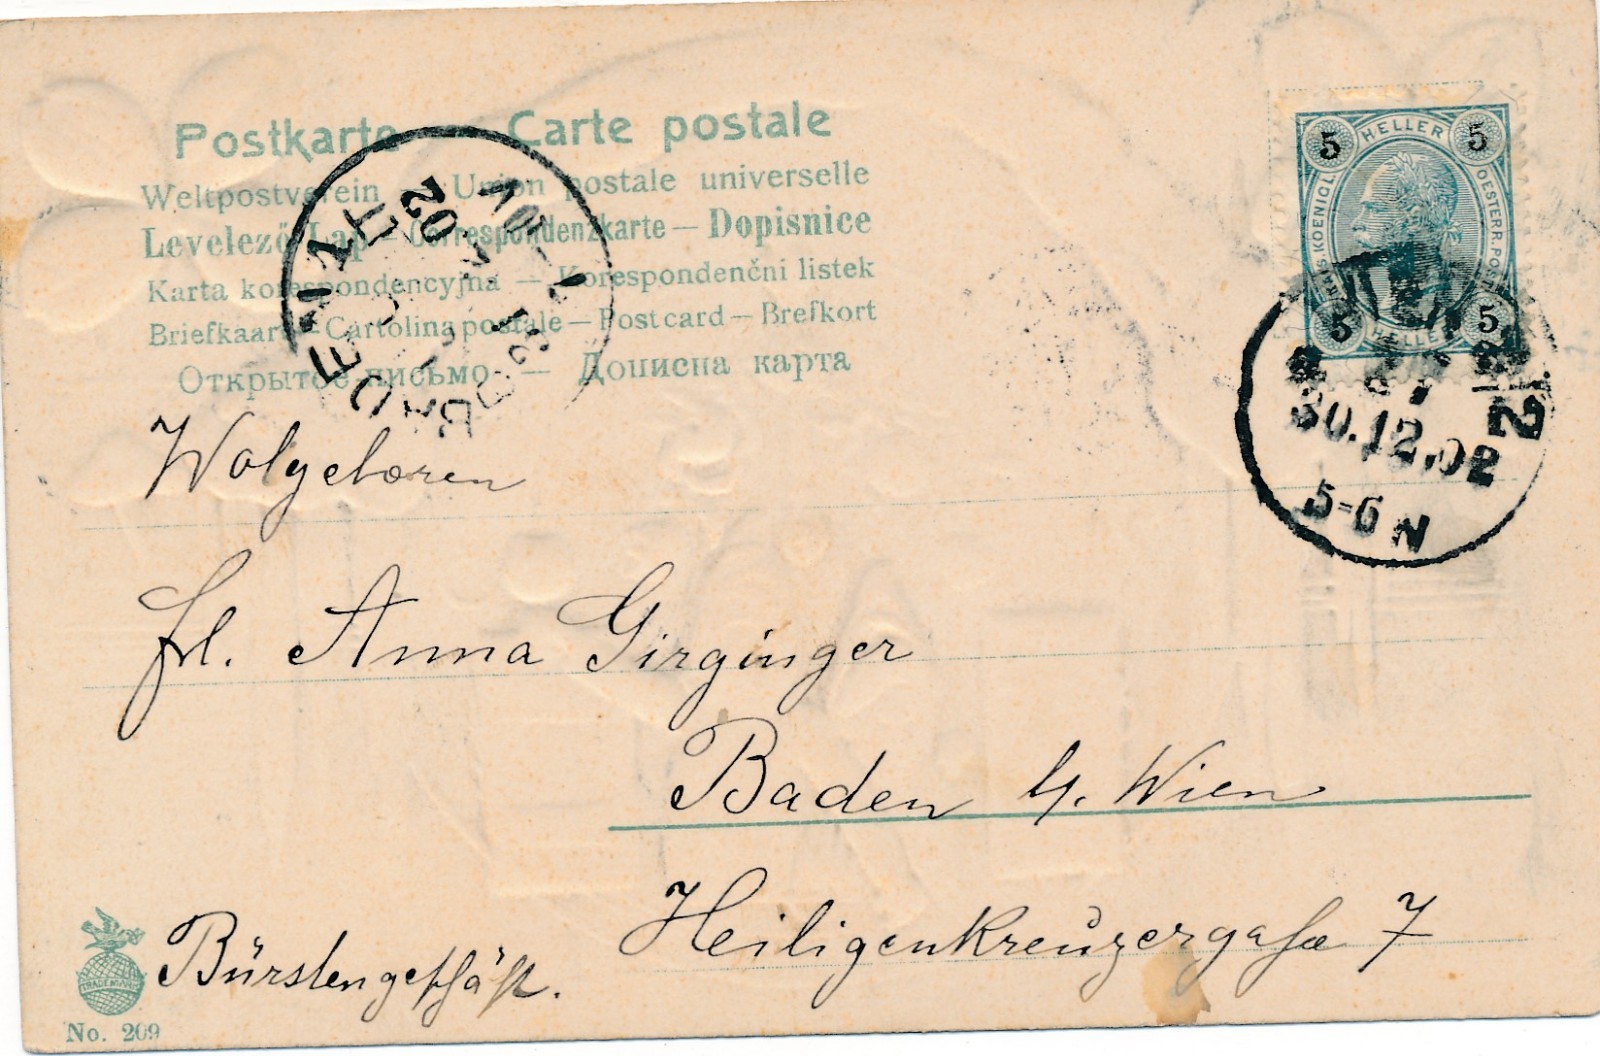 Postkarte — Carte postale
Weltpostverein — Union postale universelle
Levelező-Lap — Correspondenzkarte — Dopisnice
Karta korespondencyjna — Korespondenční listek
Briefkaart — Cartolina postale — Post card — Brefkort
Открытое письмо — Дописна карта
5 HELLER 5
KAIS. KOENIGL. OESTERR. POST
5 HELLER 5
30.12.02
5-6 N
BADEN
31 12
02
Wolgeboren
Frl. Anna Girginger
Baden b/. Wien
Heiligenkreuzergasse 7
Bürstengeschäft.
TRADEMARK
No. 209